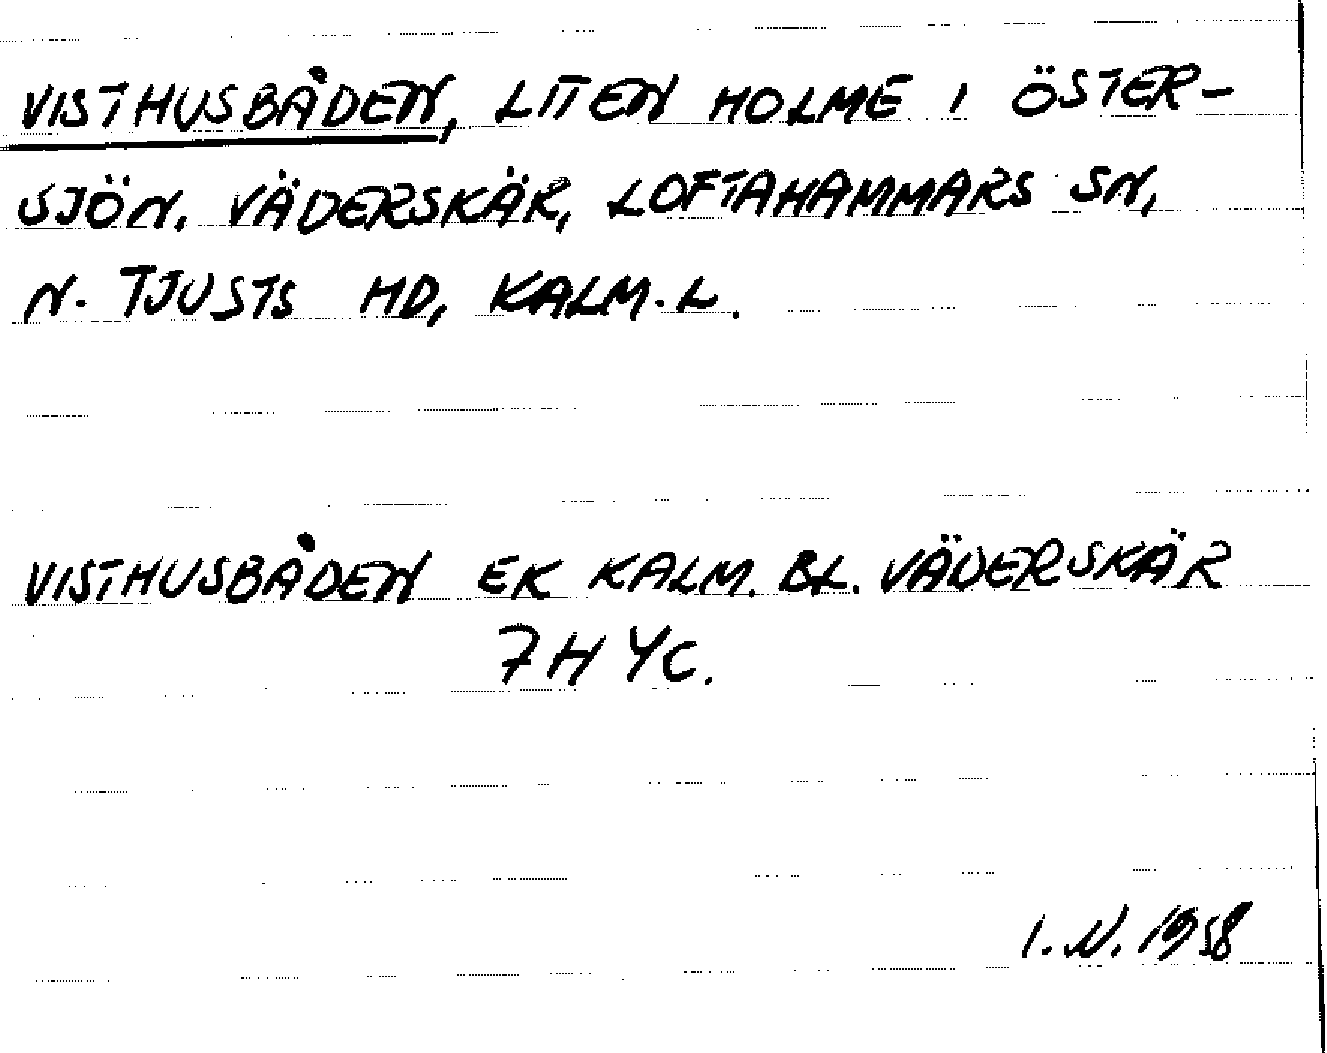 VISTHUSBÅDEN, LITEN HOLME I ÖSTER-
SJÖN. VÄDERSKÄR, LOFTAHAMMARS SN,
N. TJUSTS HD, KALM. L.
VISTHUSBÅDEN EK KALM. BL. VÄDERSKÄR
7H YC.
I. N. 1958